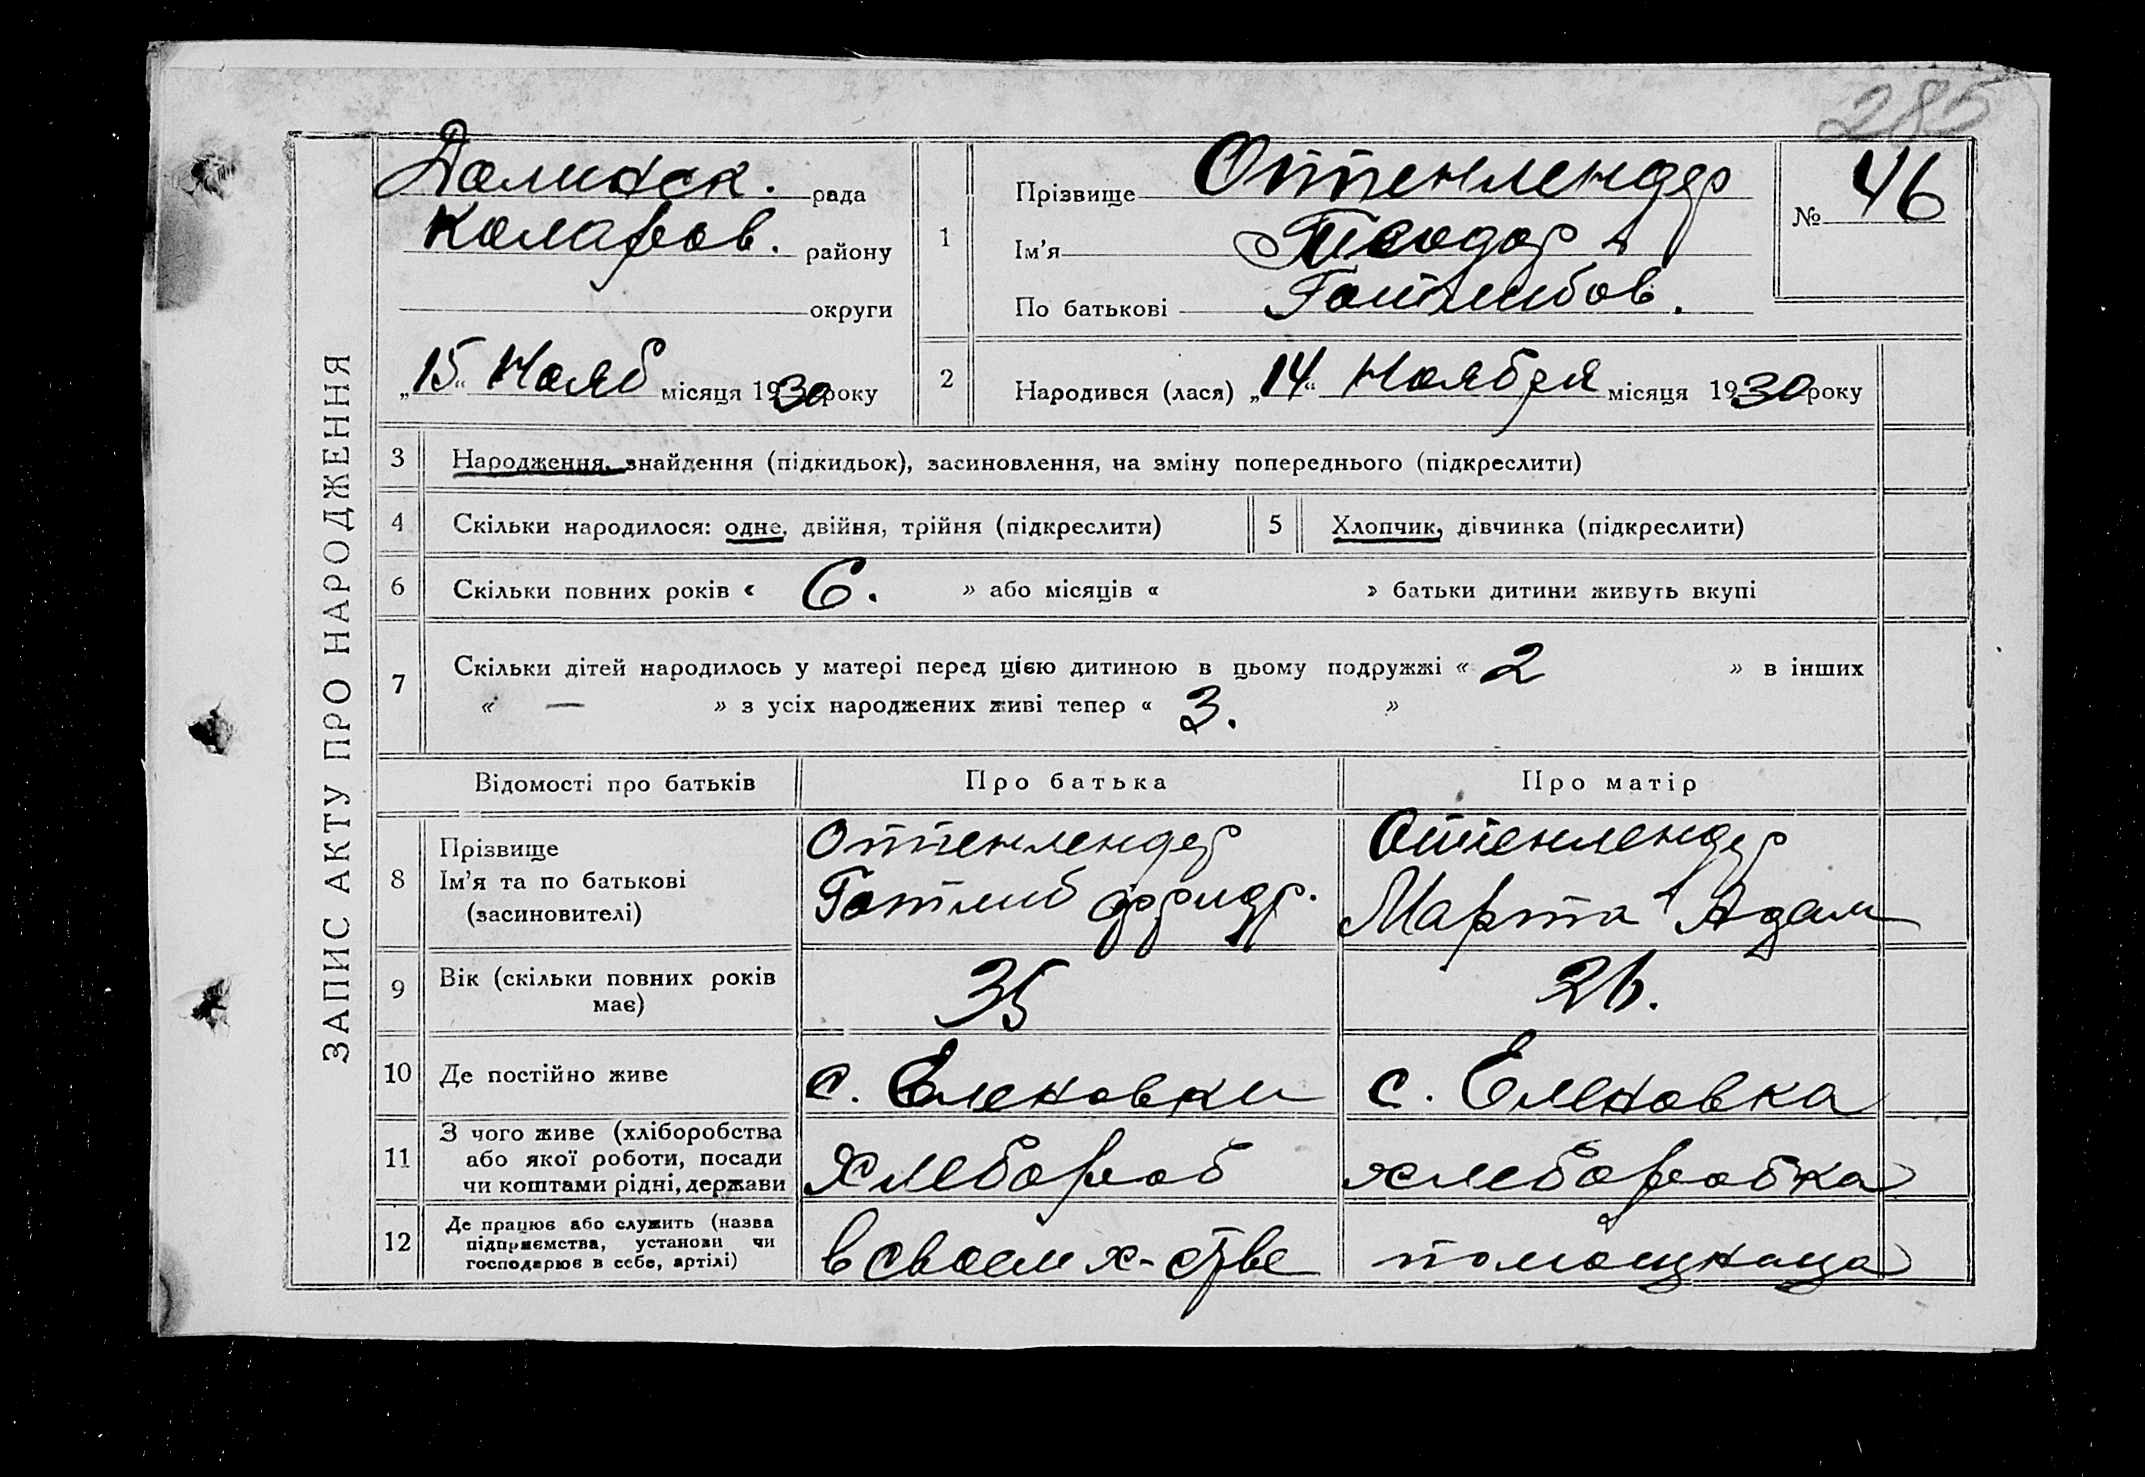 285
ЗАПИС АКТУ ПРО НАРОДЖЕННЯ
Долинск. рада
Коларов. району
округи
„15“ Нояб місяця 1930 року
1
Прізвище Оттенлендер
Ім'я Теодор
По батькові Готлибов.
№ 46
2
Народився (лася) „14“ Ноября місяця 1930 року
3 Народження, знайдення (підкидьок), засиновлення, на зміну попереднього (підкреслити)
4 Скільки народилося: одне, двійня, трійня (підкреслити) 5 Хлопчик, дівчинка (підкреслити)
6 Скільки повних років « 6. » або місяців « » батьки дитини живуть вкупі
7 Скільки дітей народилось у матері перед цією дитиною в цьому подружжі « 2 » в інших
« — » з усіх народжених живі тепер « 3. »
Відомості про батьків Про батька Про матір
8 Прізвище
Ім'я та по батькові
(засиновителі)
Оттенлендер
Готлиб Фридр.
Оттенлендер
Марта Адам
9 Вік (скільки повних років
має)
35
26.
10 Де постійно живе с. Еленовки с. Еленовка
11 З чого живе (хліборобства
або якої роботи, посади
чи коштами рідні, держави
Хлебороб
хлеборобка
12 Де працює або служить (назва
підприємства, установи чи
господарює в себе, артілі)
в своем х-стве
помощница